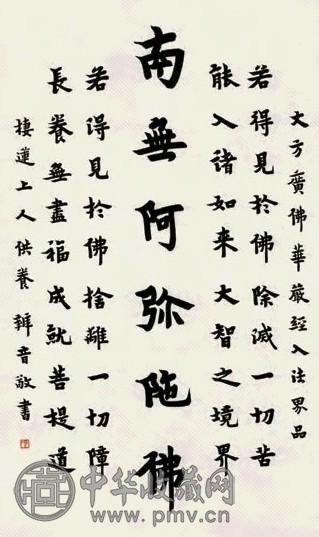 大方廣佛華嚴經入法界品
若得見於佛除滅一切苦
能入諸如来大智之境界
南無阿弥陁佛
若得見於佛捨離一切障
長養無盡福成就菩提道
棲蓮上人供養 辯音敬書
中华收藏网
www.pmv.cn